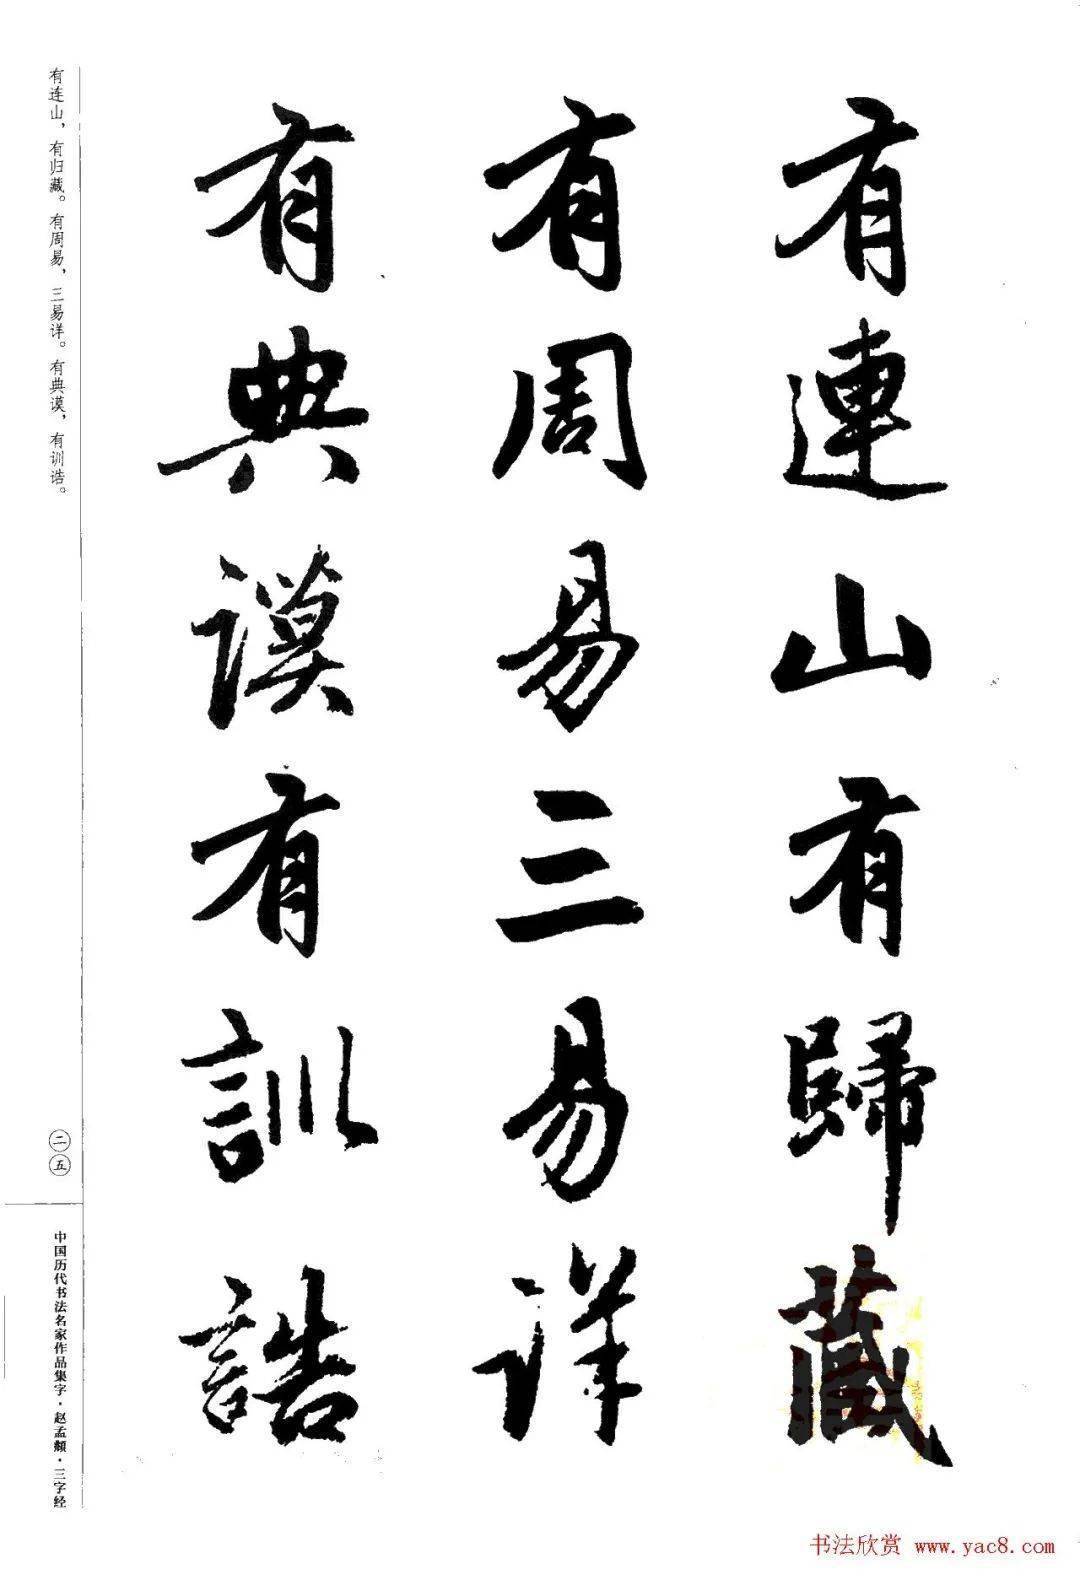 有連山有歸藏
有周易三易详
有典谟有訓誥
有连山，有归藏。有周易，三易详。有典谟，有训诰。
二五
中国历代书法名家作品集字·赵孟頫·三字经
书法欣赏 www.yac8.com